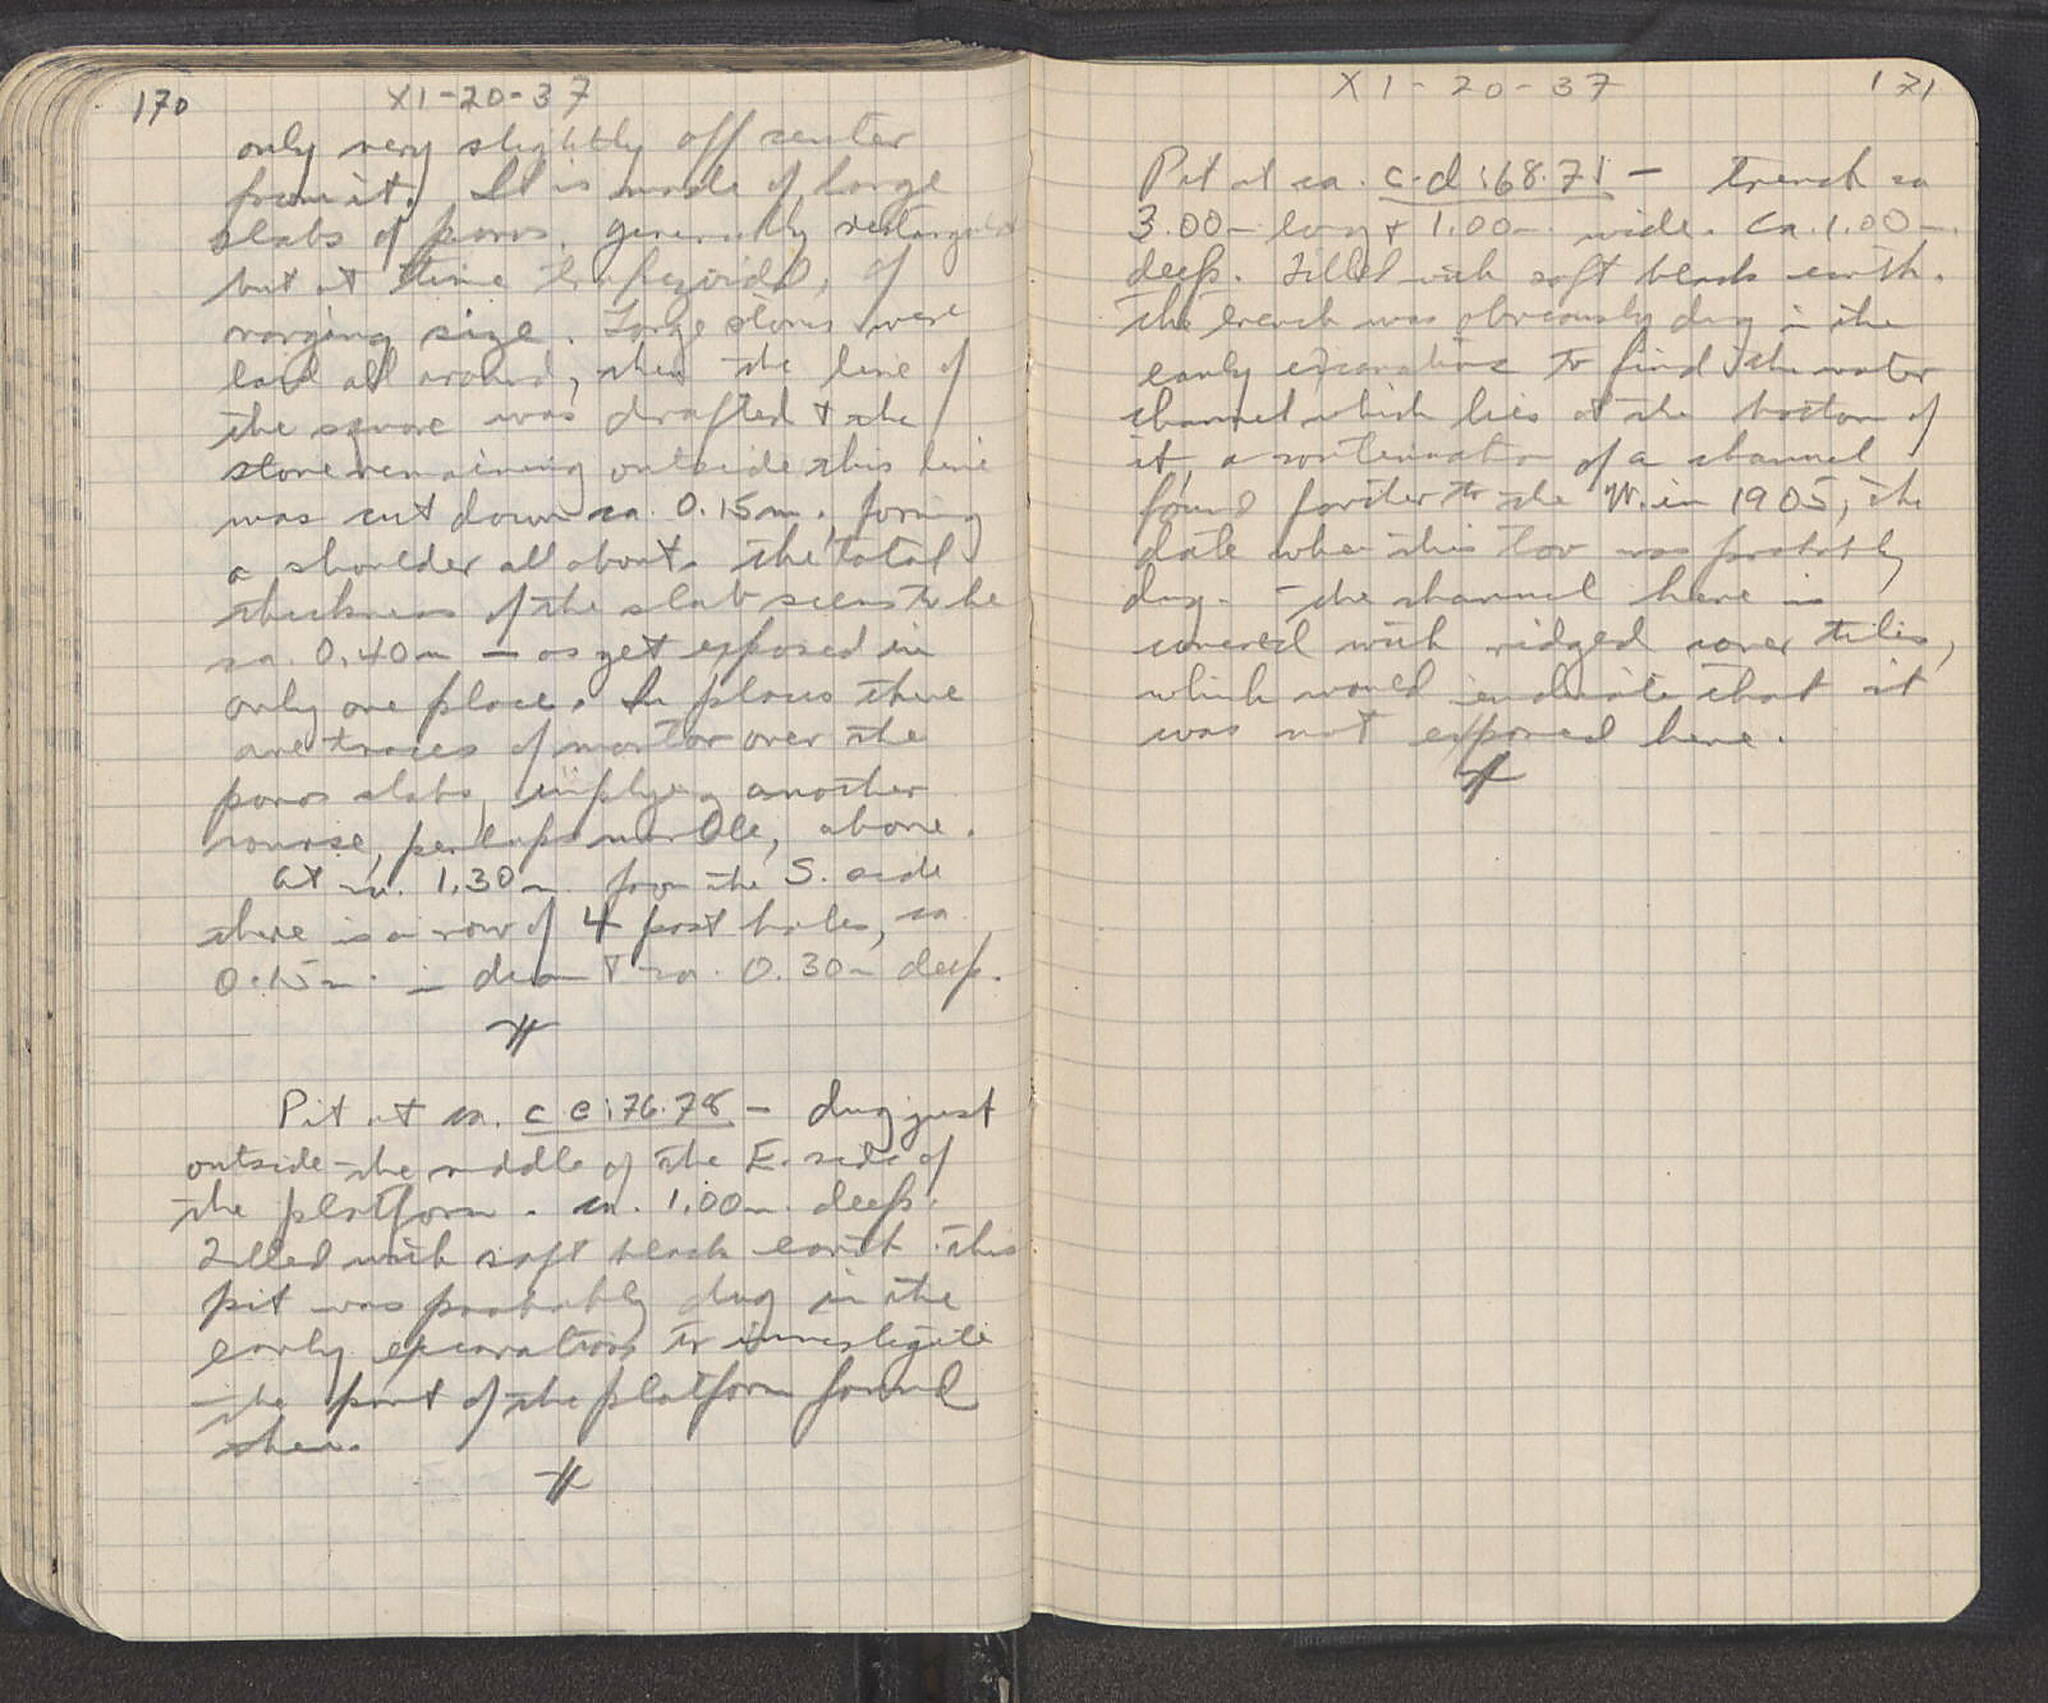 170
XI-20-37
only very slightly off center
from it. It is made of large
slabs of poros, generally rectangular
but at time trapezoidal, of
varging size. Large stones were
laid all around, then the line of
the square was drafted + the
stone remaining outside this line
was cut down ca. 0.15m., foming
a shoulder all about. The total
thickness of the slab seems to be
ca. 0.40m — as yet exposed in
only one place. In places there
are traces of mortar over the
poros slabs, implying another
course, perhaps marble, above.
At ca. 1.30m from the S. side
there is a row of 4 post holes, ca
0.15m. in diam + ca. 0.30m deep.
Pit at ca. c e:76.78 — dug just
outside the middle of the E. side of
the platform. ca. 1.00m. deep.
Filled with soft black earth. This
pit was probably dug in the
early excavations to investigate
the part of the platform found
then.
XI-20-37
171
Pit at ca. c-d:68.71 — trench ca
3.00m long + 1.00m wide. Ca. 1.00m.
deep. Filled with soft black earth.
The trench was obviously dug in the
early excavations to find the water
channel which lies at the bottom of
it, a continuation of a channel
found farther to the W. in 1905, the
date when this too was probably
dug. The channel here is
covered with ridged cover tiles,
which would indicate that it
was not exposed here.